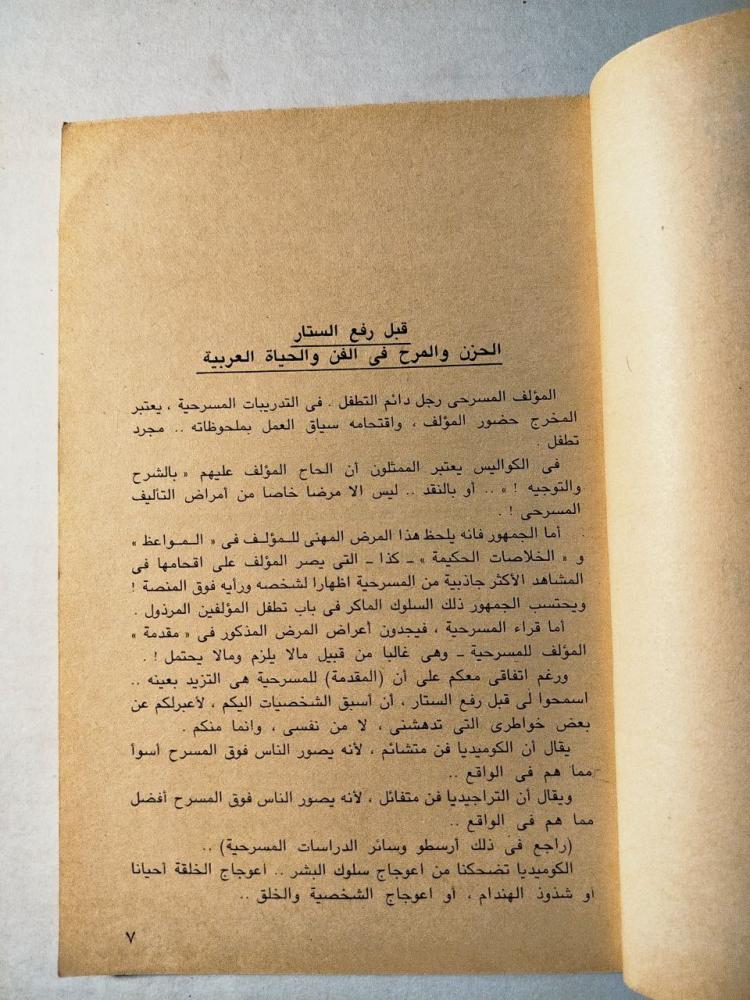 قبل رفع الستار
الحزن والمرح فى الفن والحياة العربية
المؤلف المسرحى رجل دائم التطفل . فى التدريبات المسرحية ، يعتبر
المخرج حضور المؤلف ، واقتحامه سياق العمل بملحوظاته .. مجرد
تطفل .
فى الكواليس يعتبر الممثلون أن الحاح المؤلف عليهم « بالشرح
والتوجيه ! » .. أو بالنقد .. ليس الا مرضا خاصا من أمراض التأليف
المسرحى ! .
أما الجمهور فانه يلحظ هذا المرض المهنى للمؤلف فى « المواعظ »
و « الخلاصات الحكيمة » ــ كذا ــ التى يصر المؤلف على اقحامها فى
المشاهد الأكثر جاذبية من المسرحية اظهارا لشخصه ورأيه فوق المنصة !
ويحتسب الجمهور ذلك السلوك الماكر فى باب تطفل المؤلفين المرذول .
أما قراء المسرحية ، فيجدون أعراض المرض المذكور فى « مقدمة »
المؤلف للمسرحية ــ وهى غالبا من قبيل مالا يلزم ومالا يحتمل ! .
ورغم اتفاقى معكم على أن (المقدمة) للمسرحية هى التزيد بعينه ..
اسمحوا لى قبل رفع الستار ، أن أسبق الشخصيات اليكم ، لأعبرلكم عن
بعض خواطرى التى تدهشنى ، لا من نفسى ، وانما منكم .
يقال أن الكوميديا فن متشائم ، لأنه يصور الناس فوق المسرح أسوأ
مما هم فى الواقع ..
ويقال أن التراجيديا فن متفائل ، لأنه يصور الناس فوق المسرح أفضل
مما هم فى الواقع ..
(راجع فى ذلك أرسطو وسائر الدراسات المسرحية) ..
الكوميديا تضحكنا من اعوجاج سلوك البشر .. اعوجاج الخلقة أحيانا
أو شذوذ الهندام ، أو اعوجاج الشخصية والخلق ..
٧